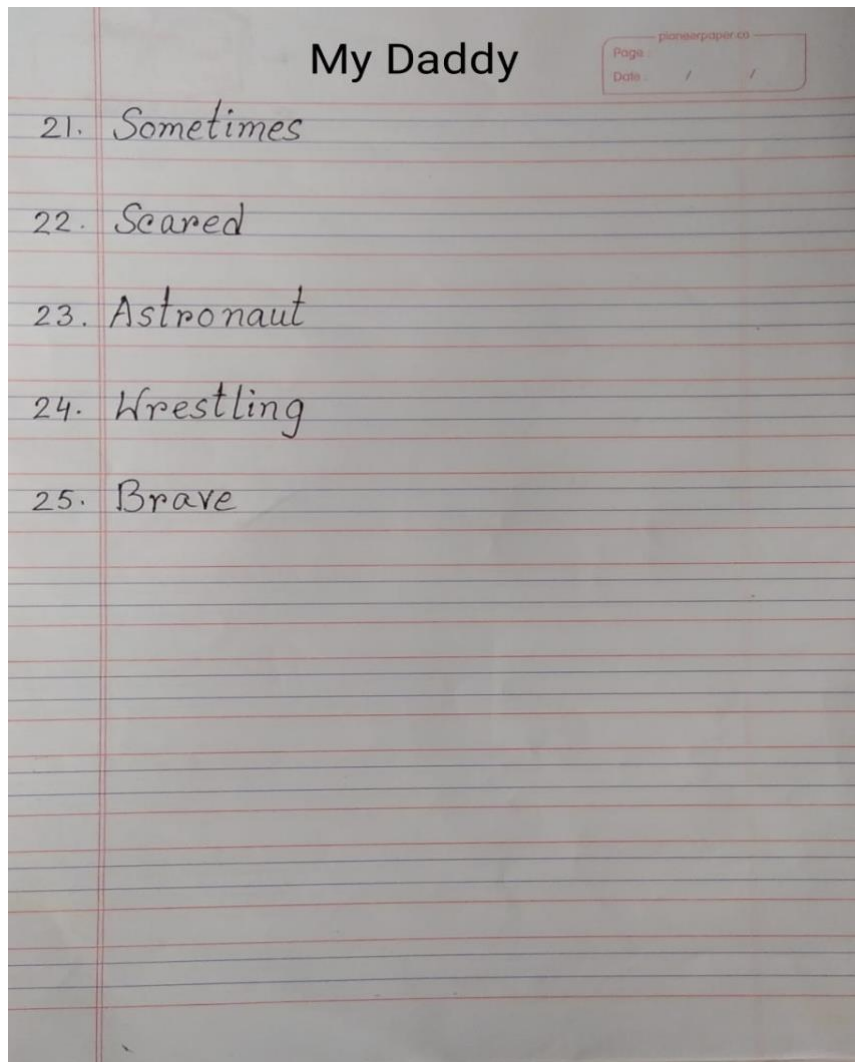 My Daddy
pioneerpaper.co
Page :
Date : / /
21. Sometimes
22. Scared
23. Astronaut
24. Wrestling
25. Brave